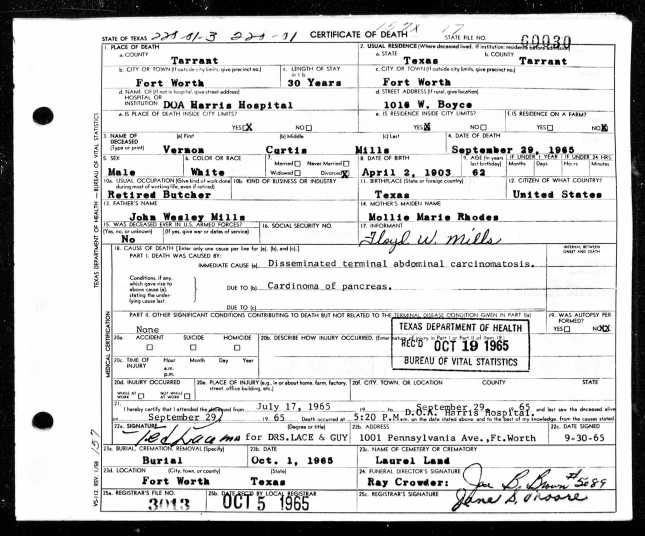 157X 17
STATE OF TEXAS CERTIFICATE OF DEATH STATE FILE NO. 60030
1. PLACE OF DEATH
a. COUNTY
Tarrant
2. USUAL RESIDENCE (Where deceased lived. If institution: residence before admission)
a. STATE b. COUNTY
Texas Tarrant
b. CITY OR TOWN (If outside city limits, give precinct no.) c. LENGTH OF STAY in 1 b
Fort Worth 30 Years
c. CITY OR TOWN (If outside city limits, give precinct no.)
Fort Worth
d. NAME OF (If not in hospital, give street address)
HOSPITAL OR
INSTITUTION DOA Harris Hospital
d. STREET ADDRESS (If rural, give location)
1016 W. Boyce
e. IS PLACE OF DEATH INSIDE CITY LIMITS?
YES X NO
e. IS RESIDENCE INSIDE CITY LIMITS?
YES X NO
f. IS RESIDENCE ON A FARM?
YES NO X
3. NAME OF
DECEASED
(Type or print)
(a) First (b) Middle (c) Last
Vernon Curtis Mills
4. DATE OF DEATH
September 29, 1965
5. SEX
Male
6. COLOR OR RACE
White
7. Married Never Married
Widowed Divorced X
8. DATE OF BIRTH
April 2, 1903
9. AGE (In years last birthday)
62
IF UNDER 1 YEAR IF UNDER 24 HRS.
Months Days Hours Minutes
10a. USUAL OCCUPATION (Give kind of work done
during most of working life, even if retired)
Retired Butcher
10b. KIND OF BUSINESS OR INDUSTRY
11. BIRTHPLACE (State or foreign country)
Texas
12. CITIZEN OF WHAT COUNTRY?
United States
13. FATHER'S NAME
John Wesley Mills
14. MOTHER'S MAIDEN NAME
Mollie Marie Rhodes
15. WAS DECEASED EVER IN U.S. ARMED FORCES?
(Yes, no, or unknown) (If yes, give war or dates of service)
No
16. SOCIAL SECURITY NO.
17. INFORMANT
Floyd W. Mills
18. CAUSE OF DEATH [Enter only one cause per line for (a), (b), and (c).]
INTERVAL BETWEEN
ONSET AND DEATH
PART I. DEATH WAS CAUSED BY:
IMMEDIATE CAUSE (a) Disseminated terminal abdominal carcinomatosis.
Conditions, if any,
which gave rise to
above cause (a),
stating the under-
lying cause last.
DUE TO (b) Cardinoma of pancreas.
DUE TO (c)
PART II. OTHER SIGNIFICANT CONDITIONS CONTRIBUTING TO DEATH BUT NOT RELATED TO THE TERMINAL DISEASE CONDITION GIVEN IN PART I(a)
None
19. WAS AUTOPSY PERFORMED?
YES NO XX
20a. ACCIDENT SUICIDE HOMICIDE
20b. DESCRIBE HOW INJURY OCCURRED. (Enter nature of injury in Part I or Part II of item 18.)
TEXAS DEPARTMENT OF HEALTH
REC'D OCT 19 1965
BUREAU OF VITAL STATISTICS
20c. TIME OF
INJURY
Hour Month Day Year
a.m.
p.m.
20d. INJURY OCCURRED
WHILE AT WORK NOT WHILE AT WORK
20e. PLACE OF INJURY (e.g., in or about home, farm, factory,
street, office building, etc.)
20f. CITY, TOWN, OR LOCATION COUNTY STATE
21. I hereby certify that I attended the deceased from July 17, 1965 19 to September 29, 65 and last saw the deceased alive
D.O.A. Harris Hospital.
September 29, 19 65 Death occurred at 5:20 P.M. on the date stated above; and to the best of my knowledge, from the causes stated.
22a. SIGNATURE (Degree or title)
for DRS. LACE & GUY
22b. ADDRESS
1001 Pennsylvania Ave., Ft.Worth
22c. DATE SIGNED
9-30-65
23a. BURIAL, CREMATION, REMOVAL (Specify)
Burial
23b. DATE
Oct. 1, 1965
23c. NAME OF CEMETERY OR CREMATORY
Laurel Land
23d. LOCATION (City, town, or county) (State)
Fort Worth Texas
24. FUNERAL DIRECTOR'S SIGNATURE
Ray Crowder: Joe B. Brown #5089
25a. REGISTRAR'S FILE NO.
3013
25b. DATE REC'D BY LOCAL REGISTRAR
OCT 5 1965
25c. REGISTRAR'S SIGNATURE
Jane S. Moore
TEXAS DEPARTMENT OF HEALTH — BUREAU OF VITAL STATISTICS
MEDICAL CERTIFICATION
157
VS-112 REV. 1/58